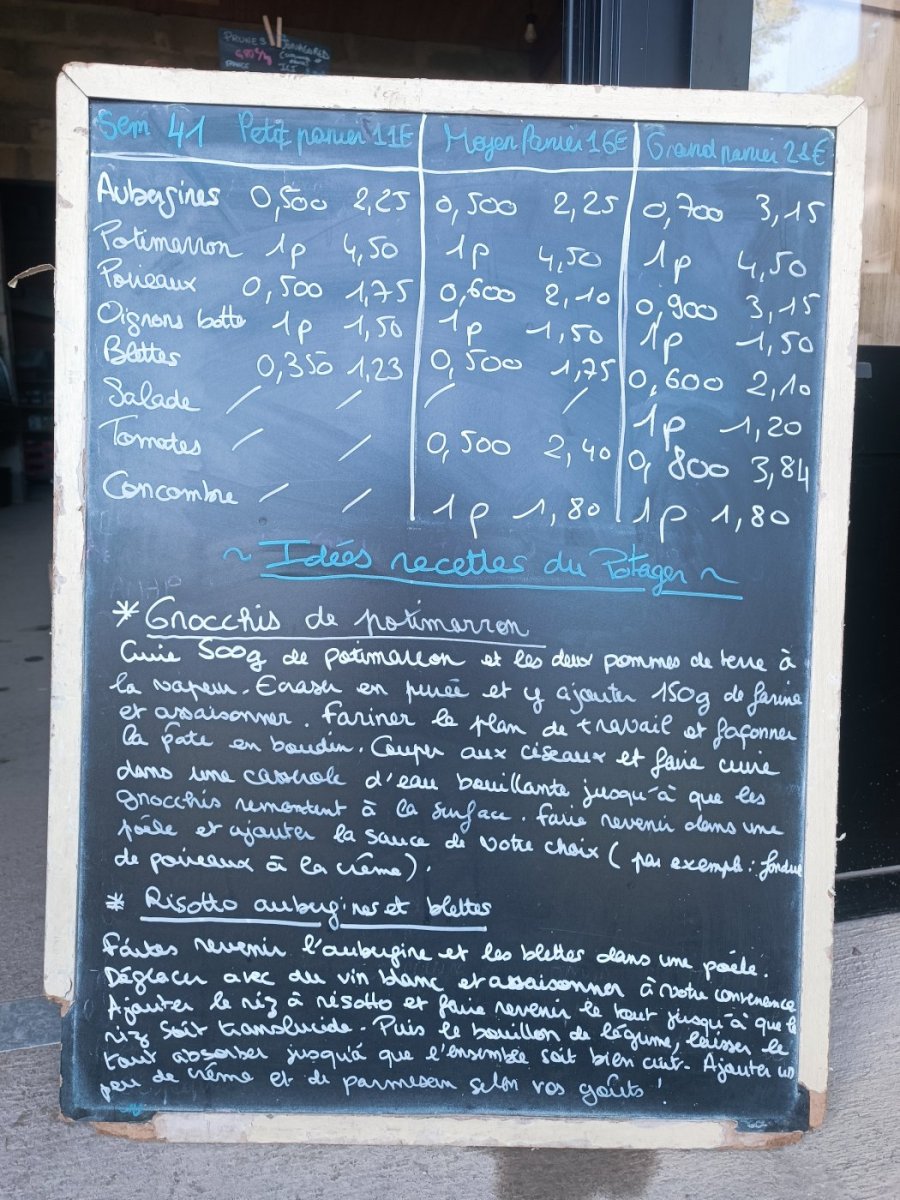 PRUNES
JONAGORED
Sem 41 Petit panier 11€ Moyen Panier 16€ Grand panier 21€
Aubergines 0,500 2,25 0,500 2,25 0,700 3,15
Potimarron 1p 4,50 1p 4,50 1p 4,50
Poireaux 0,500 1,75 0,600 2,10 0,900 3,15
Oignons botte 1p 1,50 1p 1,50 1p 1,50
Blettes 0,350 1,23 0,500 1,75 0,600 2,10
Salade / / / / 1p 1,20
Tomates / / 0,500 2,40 0,800 3,84
Concombre / / 1p 1,80 1p 1,80
~ Idées recettes du Potager ~
* Gnocchis de potimarron
Cuire 500g de potimarron et les deux pommes de terre à
la vapeur. Ecraser en purée et y ajouter 150g de farine
et assaisonner. Fariner le plan de travail et façonner
la pâte en boudin. Couper aux ciseaux et faire cuire
dans une casserole d'eau bouillante jusqu'à que les
gnocchis remontent à la surface. Faire revenir dans une
poêle et ajouter la sauce de votre choix (par exemple : fondue
de poireaux à la crème).
* Risotto aubergines et blettes
Faites revenir l'aubergine et les blettes dans une poêle.
Déglacer avec du vin blanc et assaisonner à votre convenance
Ajouter le riz à risotto et faire revenir le tout jusqu'à que le
riz soit translucide. Puis le bouillon de légume, laisser le
tout absorber jusqu'à que l'ensemble soit bien cuit. Ajouter un
peu de crème et de parmesan selon vos goûts !